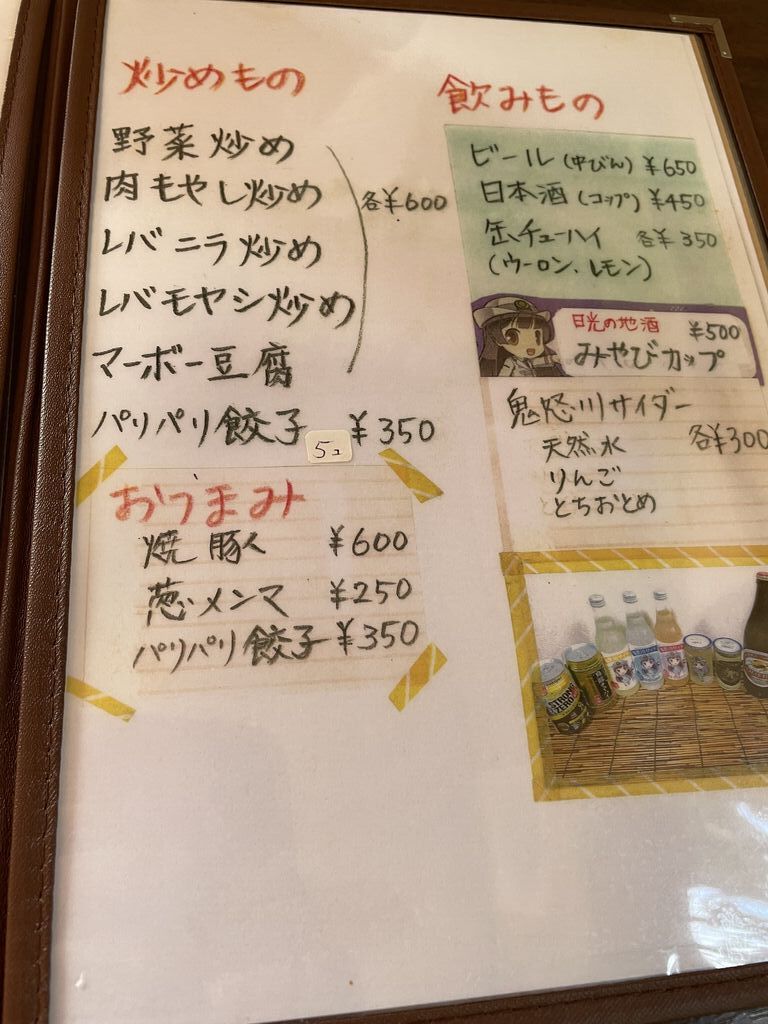 炒めもの
野菜炒め
肉もやし炒め
レバニラ炒め
レバモヤシ炒め
マーボー豆腐
各¥600
パリパリ餃子 5コ ¥350
おつまみ
焼豚 ¥600
葱メンマ ¥250
パリパリ餃子 ¥350
飲みもの
ビール(中びん) ¥650
日本酒(コップ) ¥450
缶チューハイ 各¥350
(ウーロン、レモン)
日光の地酒 ¥500
みやびカップ
鬼怒川サイダー
天然水 各¥300
りんご
とちおとめ
STRONG
ZERO